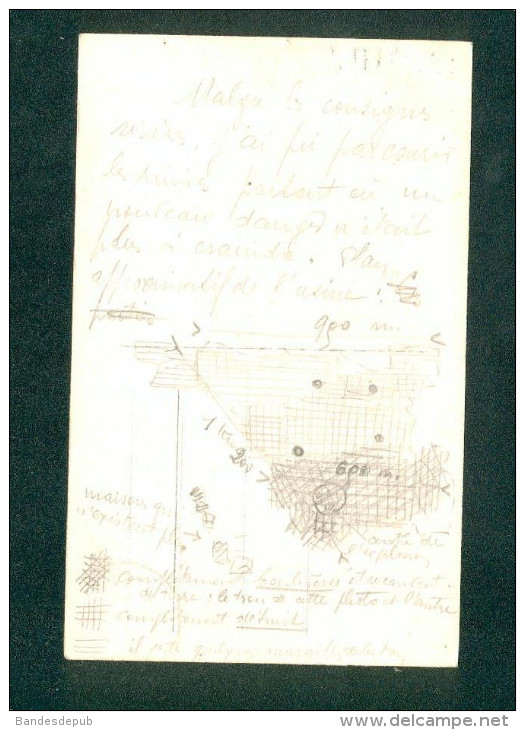 Malgré les consignes
sévères, j'ai pu parcourir
les ruines partout où un
nouveau danger n'était
plus à craindre. Plan
approximatif de l'usine :
900 m.
1 km 200
600 m.
maisons qui
n'existent plus
centre de
l'explosion
complètement et recouvert
de terre : le trou de cette photo et l'autre
complètement détruit
il reste quelques
Bandesdepub
www.delcampe.net